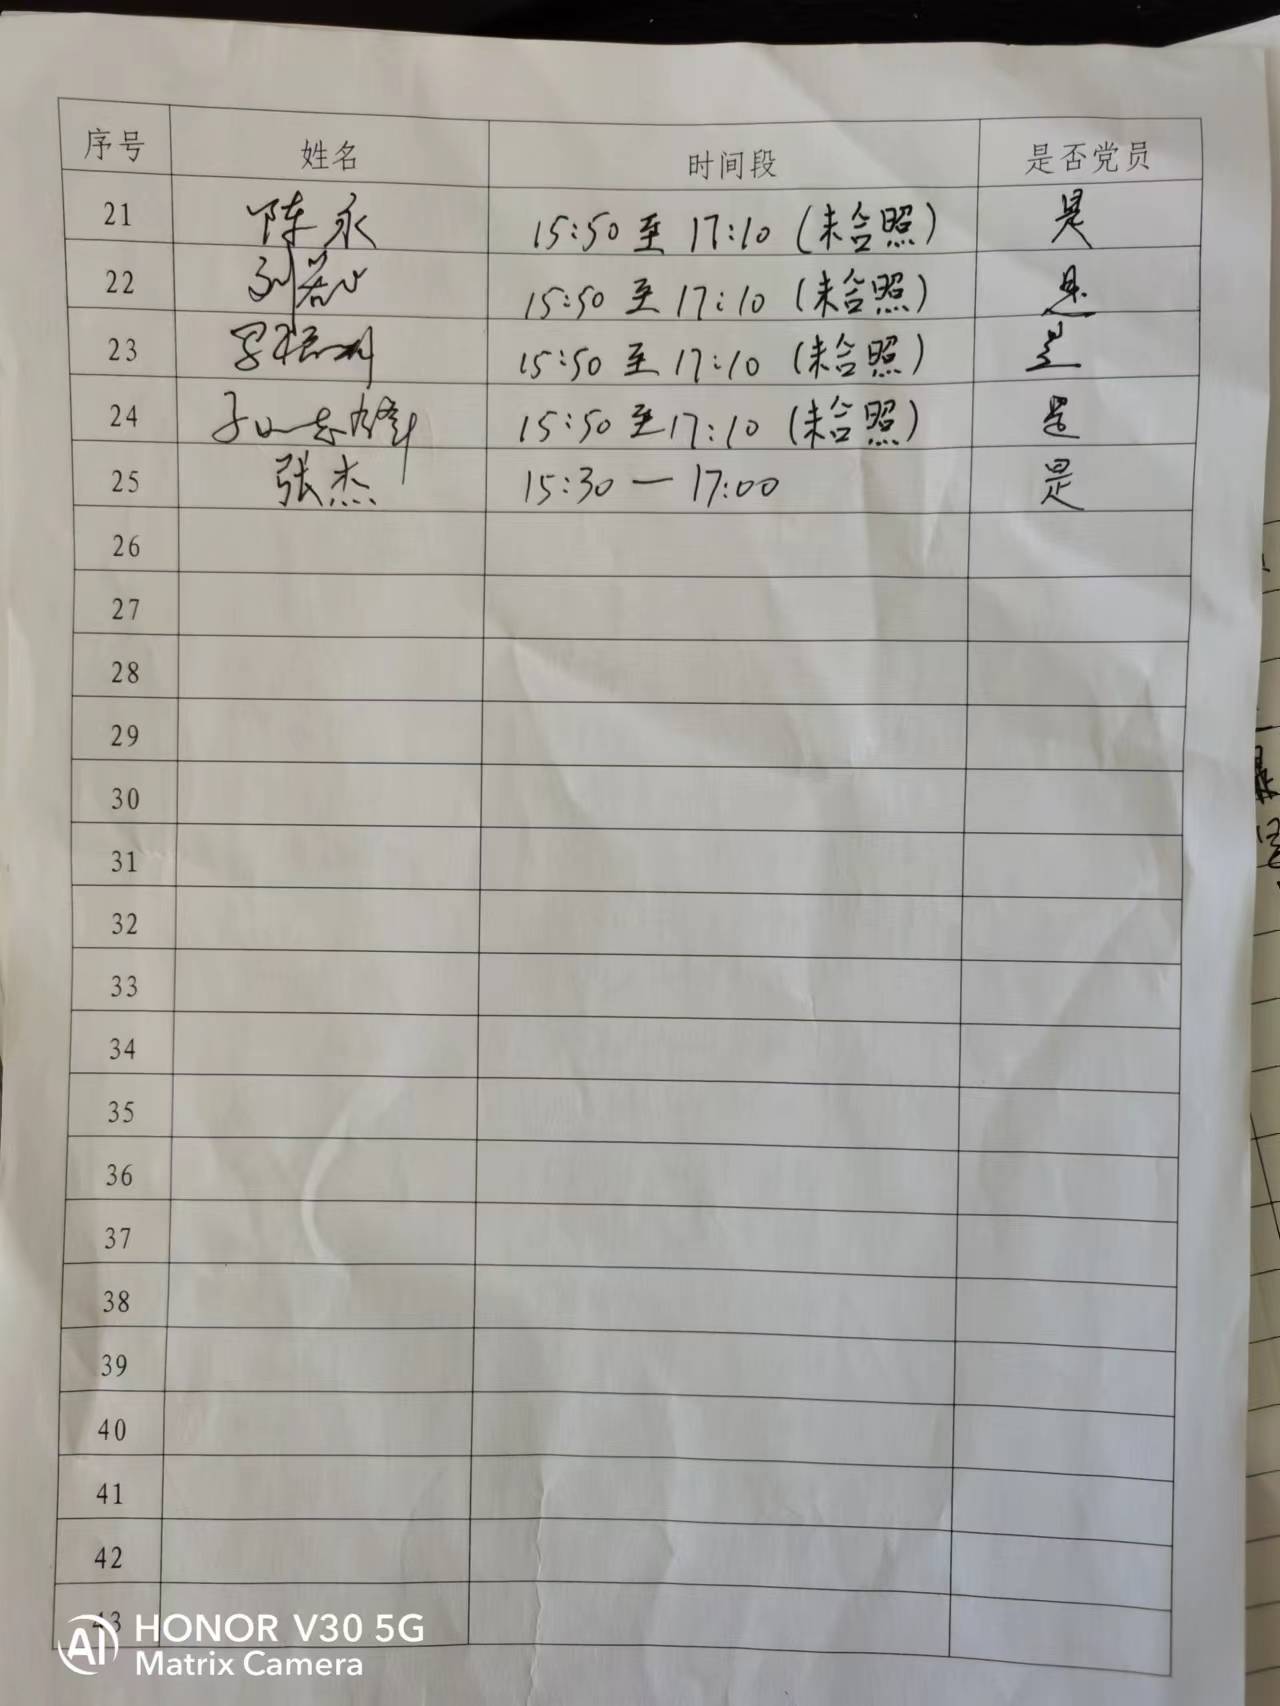 序号 姓名 时间段 是否党员
21 陈永 15:50 至 17:10 (未合照) 是
22 刘 15:50 至 17:10 (未合照) 是
23 15:50 至 17:10 (未合照) 是
24 15:50 至 17:10 (未合照) 是
25 张杰 15:30 — 17:00 是
26
27
28
29
30
31
32
33
34
35
36
37
38
39
40
41
42
43
AI HONOR V30 5G
Matrix Camera